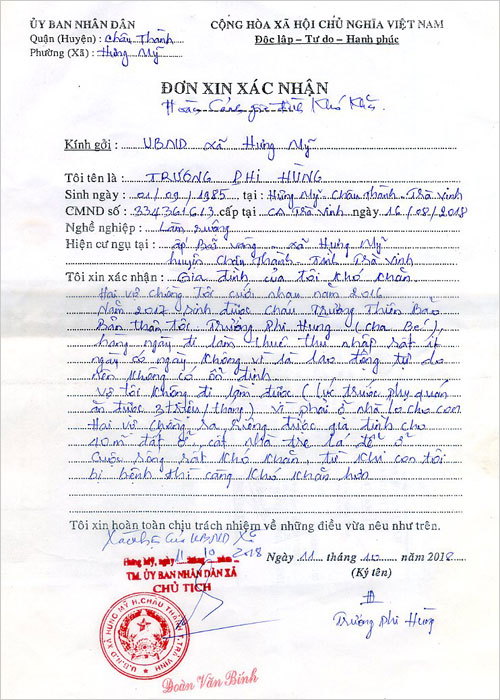 ỦY BAN NHÂN DÂN
CỘNG HÒA XÃ HỘI CHỦ NGHĨA VIỆT NAM
Quận (Huyện) : Châu Thành
Độc lập – Tự do – Hạnh phúc
Phường (Xã) : Hưng Mỹ
ĐƠN XIN XÁC NHẬN
Hoàn Cảnh gia đình Khó Khăn
Kính gởi : UBND xã Hưng Mỹ
Tôi tên là : TRƯƠNG PHI HÙNG
Sinh ngày : 01/09/1985 tại : Hưng Mỹ - Châu Thành - Trà Vinh
CMND số : 334361613 cấp tại CA Trà Vinh ngày 16/08/2018
Nghề nghiệp : Làm ruộng
Hiện cư ngụ tại : ấp xã Hưng Mỹ
huyện Châu Thành - Tỉnh Trà Vinh
Tôi xin xác nhận : Gia đình của tôi khó khăn
Hai vợ chồng tôi cưới nhau năm 2016
Năm 2017 sinh được cháu Trương Thiên Bảo
Bản thân tôi Trương Phi Hùng (cha Bé)
hàng ngày đi làm thuê thu nhập rất ít
ngày có ngày không vì là lao động tự do
nên không có ổn định
Vợ tôi không đi làm được (lúc trước phụ quán
ăn được 3 triệu/tháng) vì phải ở nhà lo cho con
Hai vợ chồng ra riêng được gia đình cho
40m đất ở cất nhà tre lá để ở
cuộc sống rất khó khăn từ khi con tôi
bị bệnh thì càng khó khăn hơn
Tôi xin hoàn toàn chịu trách nhiệm về những điều vừa nêu như trên.
Xác nhận của UBND Xã
Hưng Mỹ, ngày 11 tháng 10 năm 2018
Ngày 11 tháng 10 năm 2018
TM. ỦY BAN NHÂN DÂN XÃ
(Ký tên)
CHỦ TỊCH
U.B.N.D XÃ HƯNG MỸ H.CHÂU THÀNH T.TRÀ VINH
Trương Phi Hùng
Đoàn Văn Bính